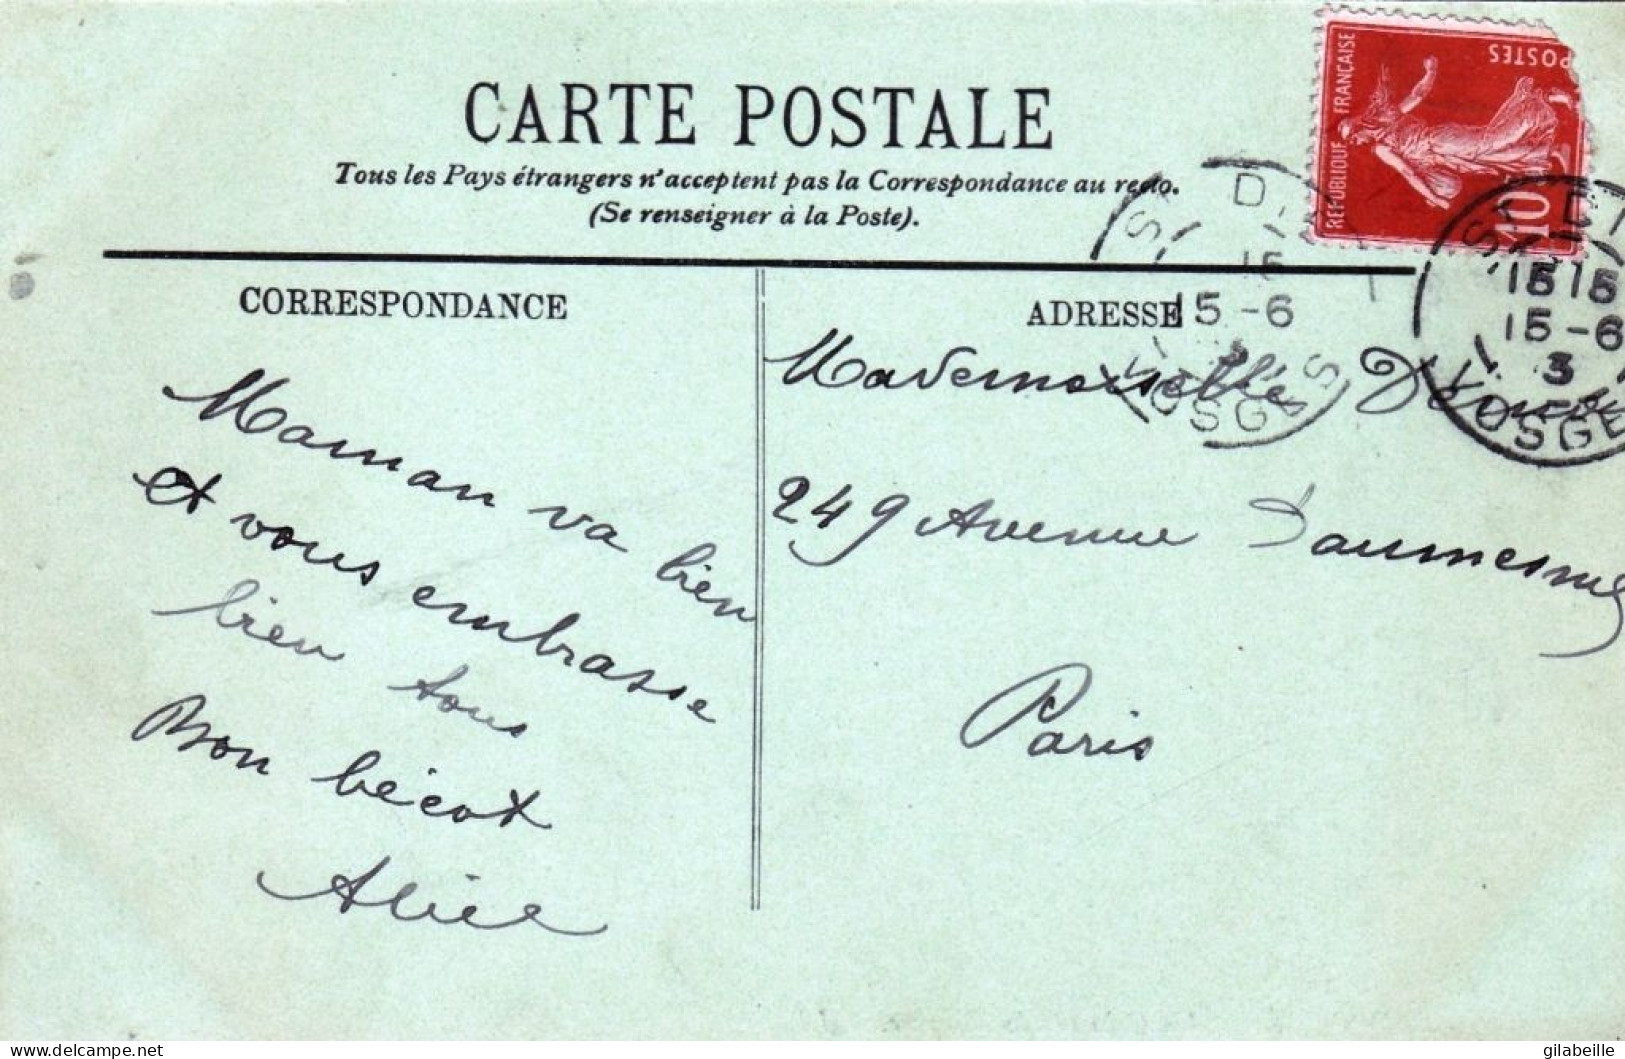 CARTE POSTALE
Tous les Pays étrangers n'acceptent pas la Correspondance au recto.
(Se renseigner à la Poste).
REPUBLIQUE FRANÇAISE
POSTES
10
ST D
15
15-6
VOSGES
ST DI
15 15
15-6
3
VOSGE
CORRESPONDANCE
Maman va bien
et vous embrasse
bien tous
Bon bécot
Alice
ADRESSE
Mademoiselle
249 Avenue Daumesnil
Paris
delcampe.net
gilabeille